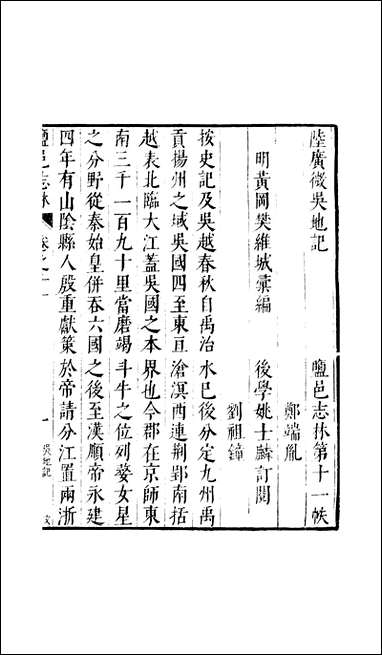 陸廣微吳地記　鹽邑志林第十一帙
鄭端胤
明黃岡樊維城彙編　後學姚士麟訂閱
劉祖鐘
按史記及吳越春秋自禹治水已後分定九州禹
貢揚州之域吳國四至東亘滄溟西連荊郢南括
越表北臨大江蓋吳國之本界也今郡在京師東
南三千一百九十里當磨竭斗牛之位列婺女星
之分野從秦始皇併吞六國之後至漢順帝永建
四年有山陰縣人殷重獻策於帝請分江置兩浙
鹽邑志林　卷之十一　一　吳地記